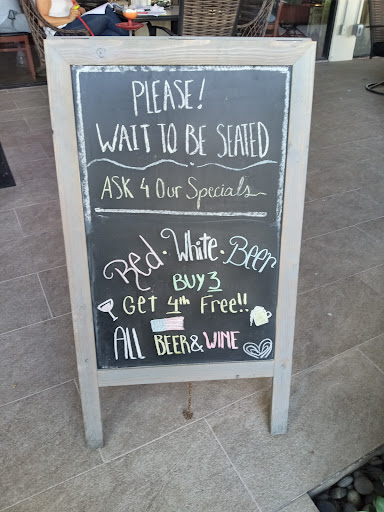 PLEASE!
WAIT TO BE SEATED
ASK 4 Our Specials
Red · White · Beer
BUY 3
Get 4th Free!!
ALL BEER & WINE